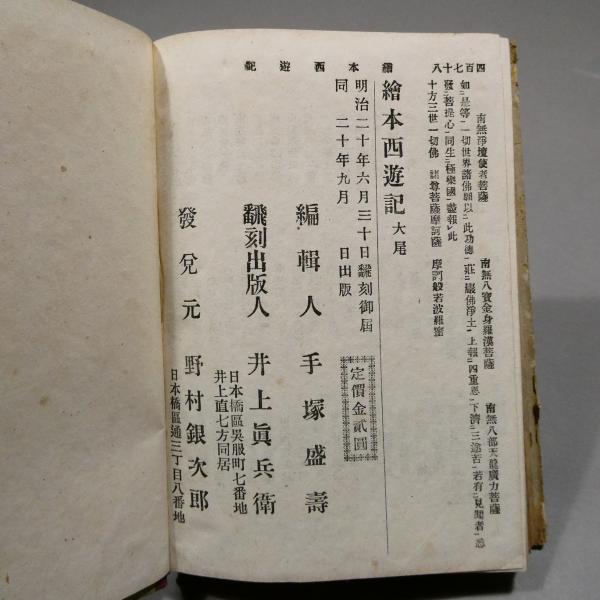 繪本西遊記
四百七十八
南無淨壇使者菩薩　南無八寶金身羅漢菩薩　南無八部天龍廣力菩薩
如是等一切世界諸佛願以此功德莊嚴佛淨土上報四重恩下濟三途苦若有見聞者悉
發菩提心同生極樂國盡報此
十方三世一切佛　諸尊菩薩摩訶薩　摩訶般若波羅蜜
繪本西遊記 大尾
明治二十年六月三十日飜刻御屆
同　二十年九月　日出版
定價金貳圓
編輯人　手塚盛壽
飜刻出版人　井上眞兵衛
日本橋區吳服町七番地
井上直七方同居
發兌元　野村銀次郎
日本橋區通三丁目八番地